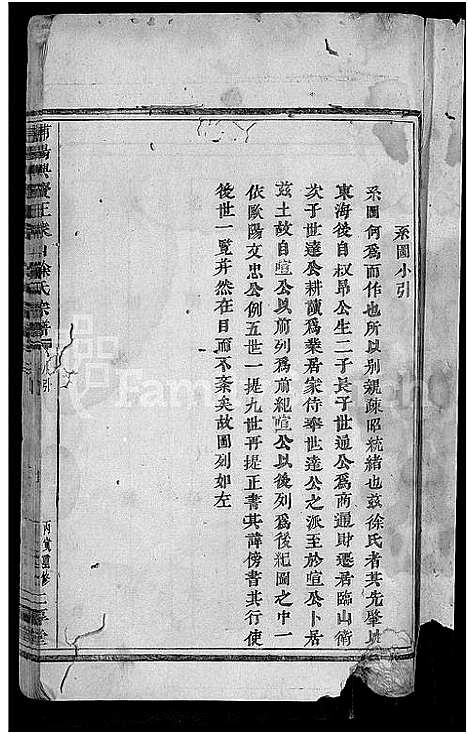 系圖小引
系圖何為而作也所以別親疎昭統緒也茲徐氏者其先肇
東海後自叔昂公生二子長子世通公為商通財遷居臨山衛
次子世達公耕讀為業居家侍奉世達公之派至於喧公卜居
茲土故自喧公以前列為前紀喧公以後列為後紀圖之中一
依歐陽文忠公例五世一提九世再提正書其諱傍書其行使
後世一覽井然在目而不紊矣故圖列如左
徐氏宗譜
小引
丙寅重修